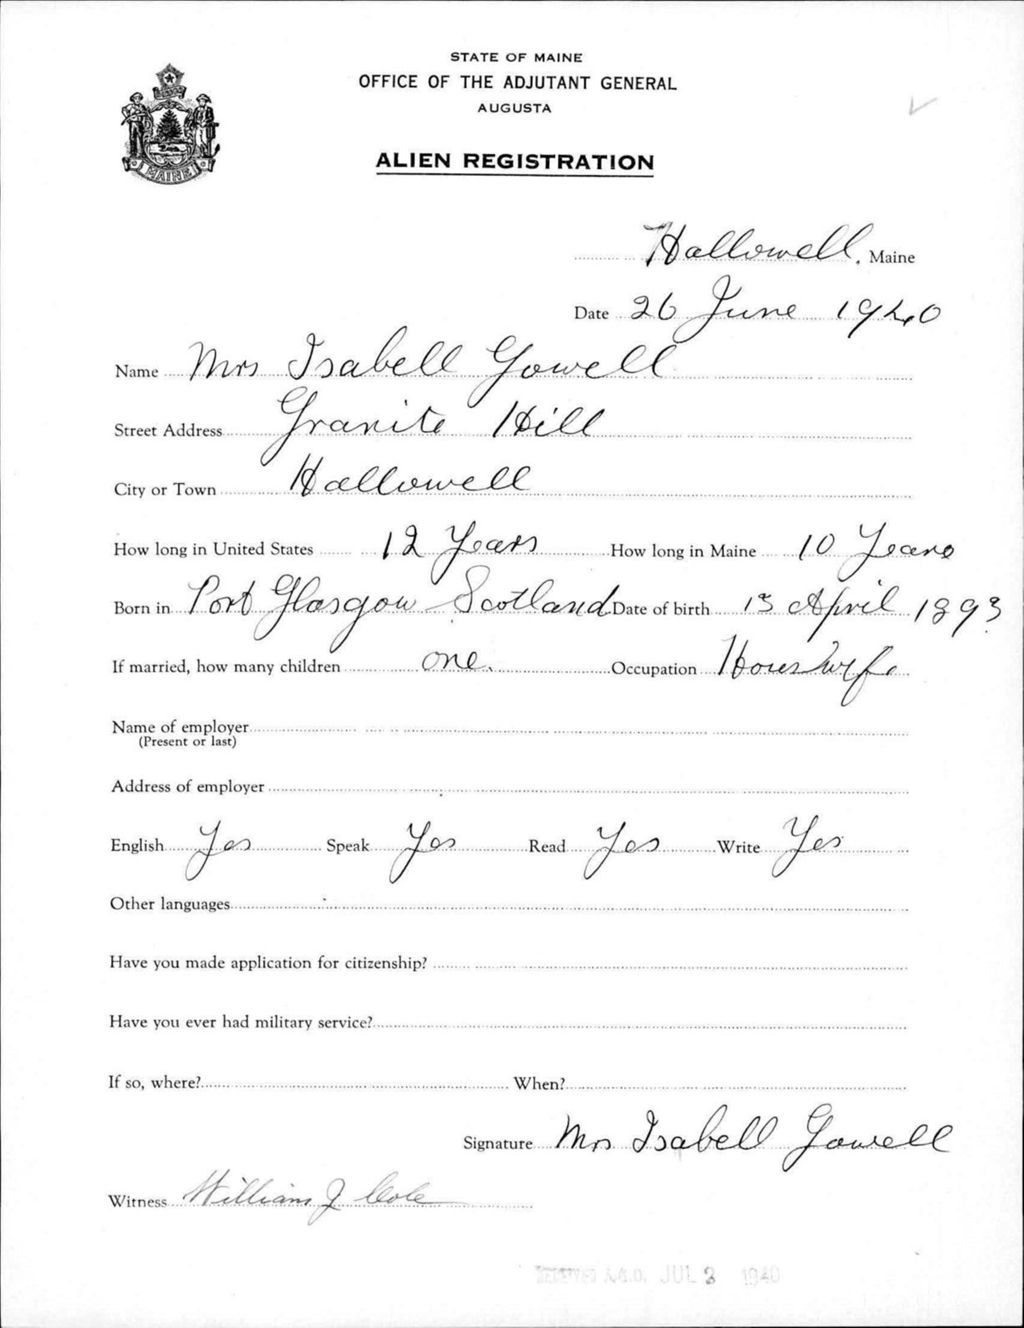 STATE OF MAINE
OFFICE OF THE ADJUTANT GENERAL
AUGUSTA
ALIEN REGISTRATION
MAINE
Hallowell, Maine
Date 26 June 1940
Name Mrs Isabell Gowell
Street Address Granite Hill
City or Town Hallowell
How long in United States 12 Years How long in Maine 10 Years
Born in Port Glasgow Scotland Date of birth April 1893
If married, how many children one. Occupation Houswife
Name of employer
(Present or last)
Address of employer
English Yes Speak Yes Read Yes Write Yes
Other languages
Have you made application for citizenship?
Have you ever had military service?
If so, where? When?
Signature Mrs Isabell Gowell
Witness William J Cole
RECEIVED A.G.O. JUL 3 1940